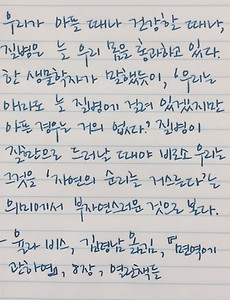 우리가 아플 때나 건강할 때나,
질병은 늘 우리 몸을 통과하고 있다.
한 생물학자가 말했듯이, '우리는
아마도 늘 질병에 걸려 있겠지만
아픈 경우는 거의 없다.' 질병이
질환으로 드러날 때야 비로소 우리는
그것을 '자연의 순리를 거스른다'는
의미에서 부자연스러운 것으로 본다.
- 율라 비스, 김명남 옮김, "면역에
관하여", 8장, 열린책들